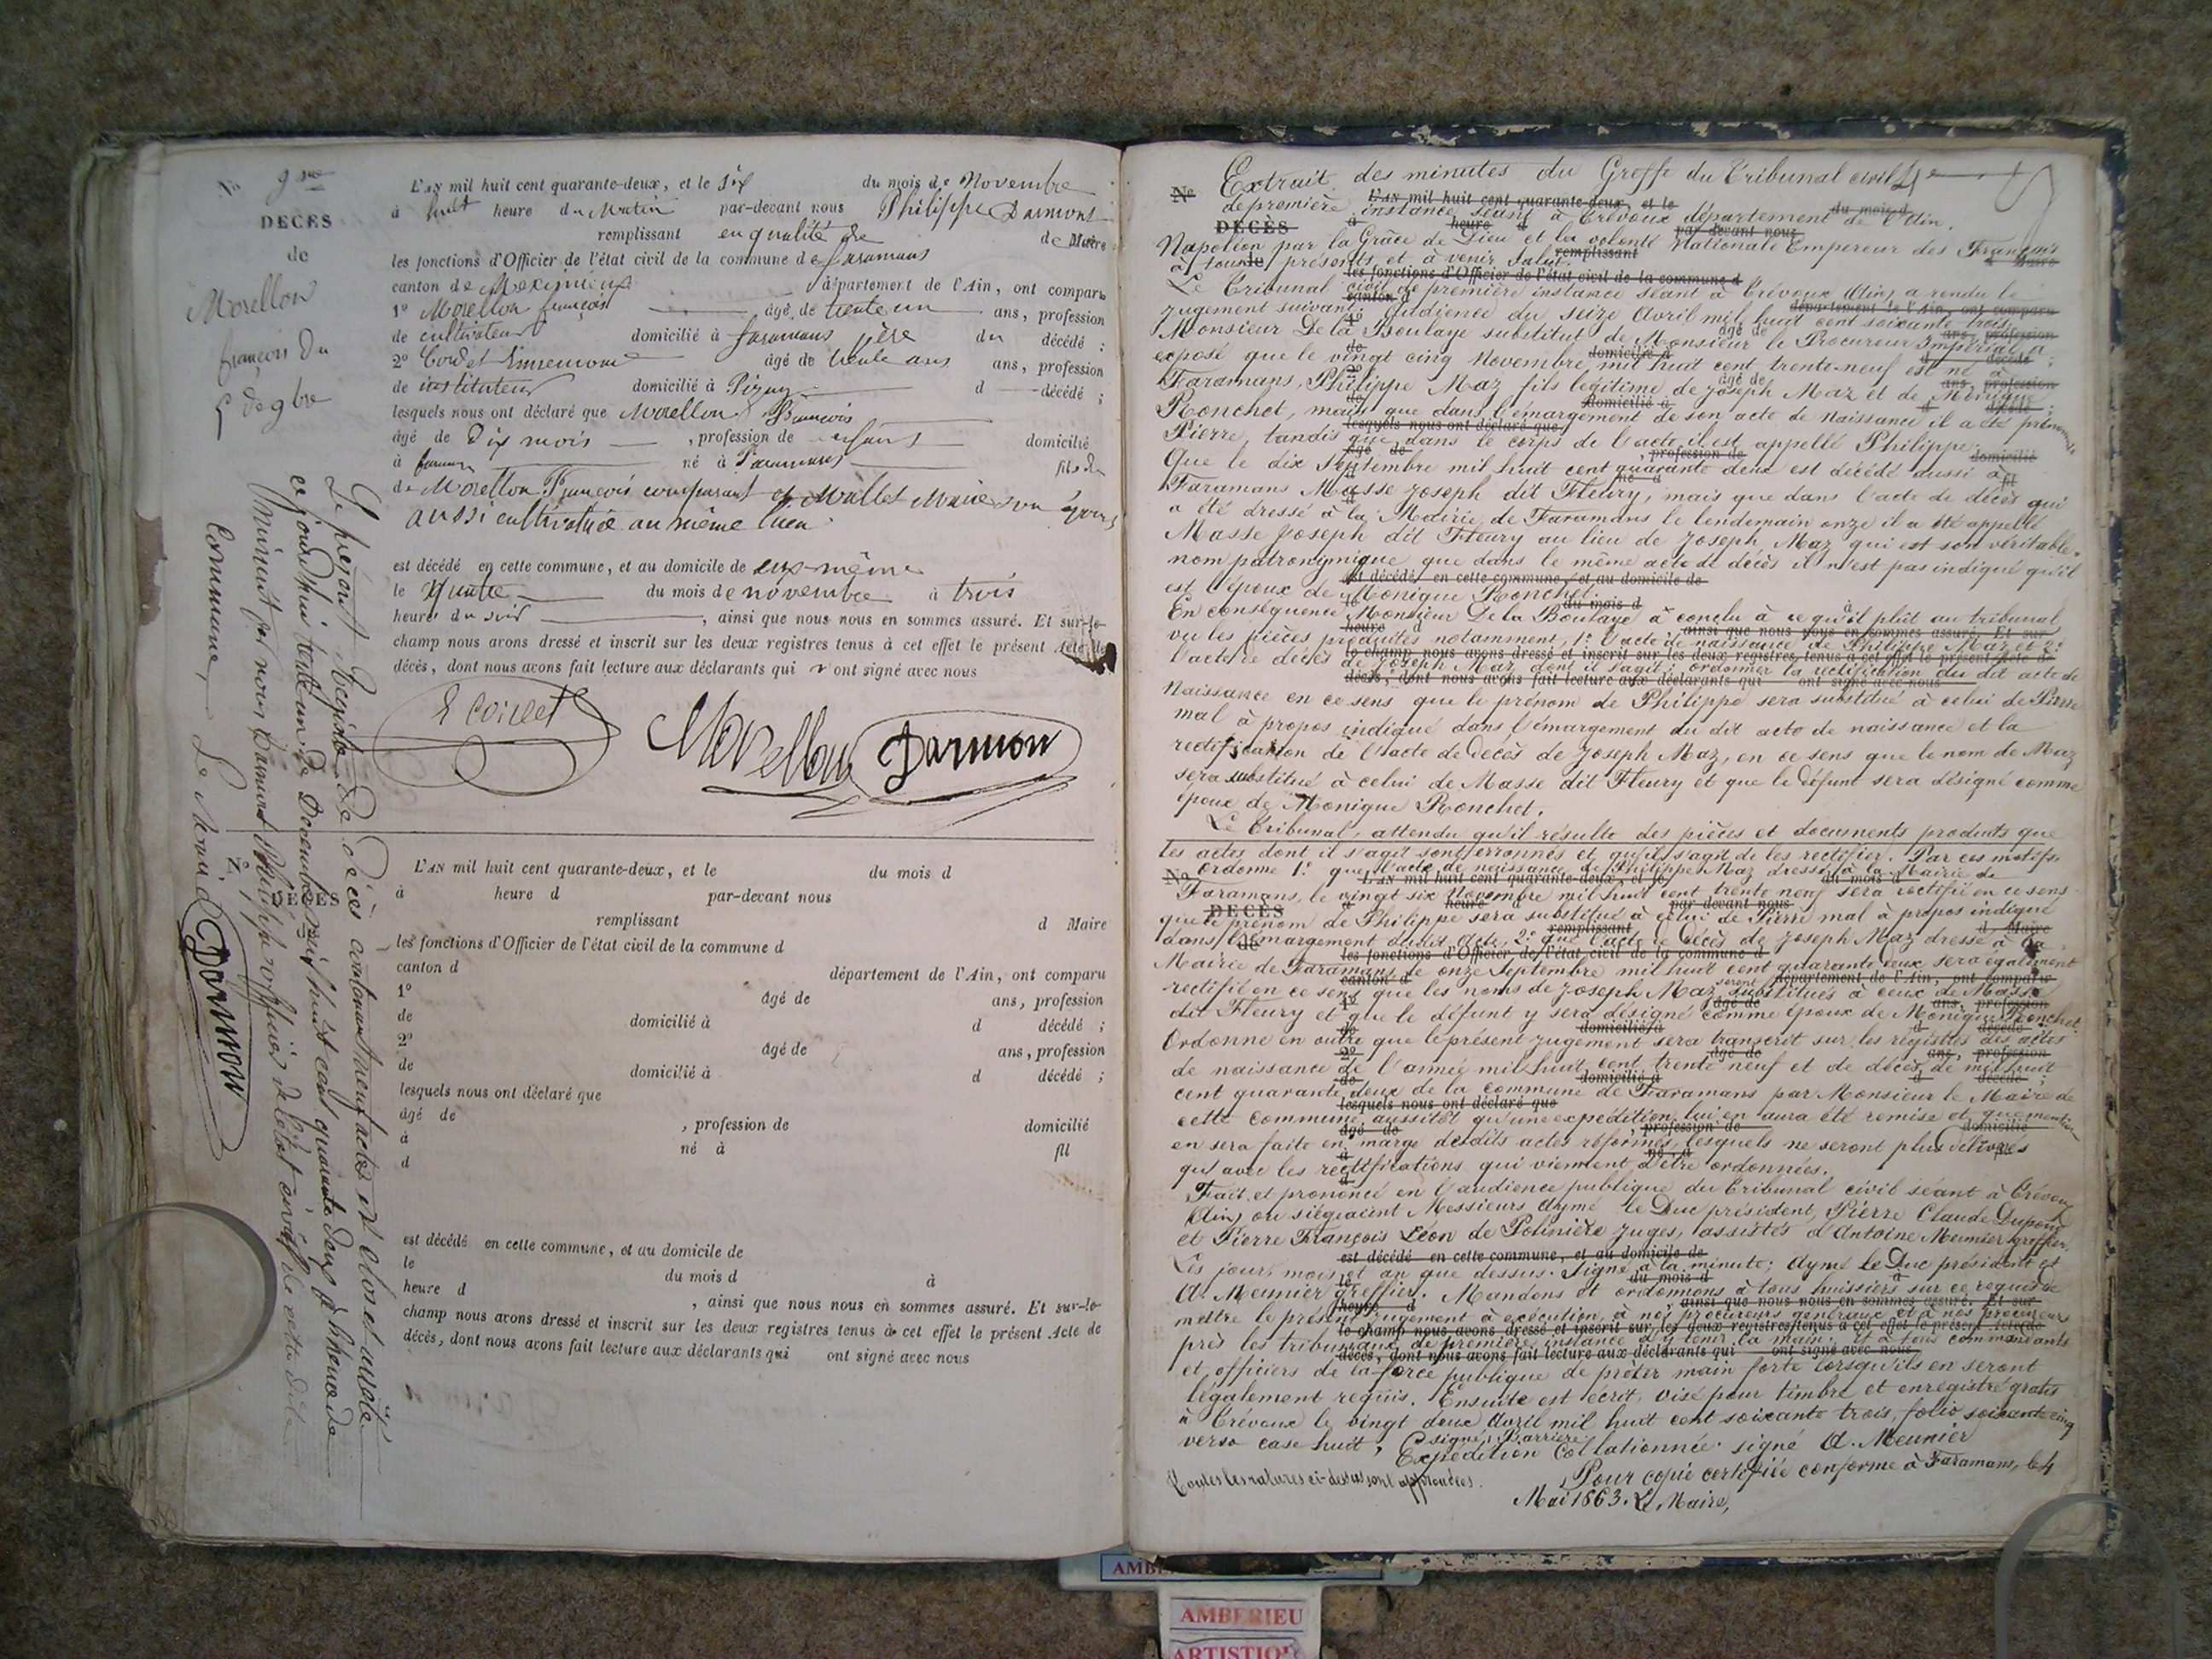 No 9me
DECES
de
Morellon
françois du
5 de 9bre
L'AN mil huit cent quarante-deux, et le six du mois de Novembre
à huit heure du Matin par-devant nous Philippe Darmont
remplissant en qualité de de Maire
les fonctions d'Officier de l'état civil de la commune de faramans
canton de Meximieux département de l'Ain, ont comparu
1° Morellon françois âgé de trente un ans, profession
de cultivateur domicilié à faramans père du décédé ;
2° âgé de trente ans ans, profession
de instituteur domicilié à Pizay d décédé ;
lesquels nous ont déclaré que Morellon François
âgé de Dix mois , profession de enfant domicilié
à né à Faramans fils du
de Morellon François comparant et Mallet Marie son
aussi cultivatrice au même lieu
est décédé en cette commune, et au domicile de eux-même
le du mois de novembre à trois
heures du soir , ainsi que nous nous en sommes assuré. Et sur-le-
champ nous avons dressé et inscrit sur les deux registres tenus à cet effet le présent Acte de
décès, dont nous avons fait lecture aux déclarants qui ont signé avec nous
Morellon Darmon
Le présent Registre de Décès contenant neuf actes est clos et arrêté
ce jourd'hui trente un de Décembre mil huit cent quarante deux à heure de
par nous Darmont Philippe officier de l'état civil de cette dite
Commune, Le Maire
Darmon
No
DÉCÈS
L'AN mil huit cent quarante-deux, et le du mois d
à heure d par-devant nous
remplissant d Maire
les fonctions d'Officier de l'état civil de la commune d
canton d département de l'Ain, ont comparu
1° âgé de ans, profession
de domicilié à d décédé ;
2° âgé de ans, profession
de domicilié à d décédé ;
lesquels nous ont déclaré que
âgé de , profession de domicilié
à né à fil
d
est décédé en cette commune, et au domicile de
le du mois d à
heure d , ainsi que nous nous en sommes assuré. Et sur-le-
champ nous avons dressé et inscrit sur les deux registres tenus à cet effet le présent Acte de
décès, dont nous avons fait lecture aux déclarants qui ont signé avec nous
Extrait des minutes du Greffe du Tribunal civil
de première instance séant à Trévoux département de l'Ain.
Napoléon par la Grâce de Dieu et la volonté Nationale Empereur des Français
à tous présents et à venir Salut.
Le Tribunal civil de première instance séant à Trévoux (Ain) a rendu le
jugement suivant : Audience du seize Avril mil huit cent soixante trois.
Monsieur De la Boulaye substitut de Monsieur le Procureur Impérial a
exposé que le vingt cinq Novembre mil huit cent trente-neuf est né à
Faramans, Philippe Maz fils légitime de Joseph Maz et de Monique
Ronchet, mais que dans l'émargement de son acte de naissance il a été prénommé
Pierre, tandis que dans le corps de l'acte il est appellé Philippe.
Que le dix Septembre mil huit cent quarante deux est décédé aussi à
Faramans Masse Joseph dit Fleury, mais que dans l'acte de décès qui
a été dressé à la Mairie de Faramans le lendemain onze il a été appellé
Masse Joseph dit Fleury au lieu de Joseph Maz qui est son véritable
nom patronymique que dans le même acte de décès il n'est pas indiqué qu'il
est l'époux de Monique Ronchet.
En conséquence Monsieur De la Boulaye a conclu à ce qu'il plût au tribunal
vu les pièces produites notamment, 1° l'acte de naissance de Philippe Maz et 2°
l'acte de décès de Joseph Maz dont il s'agit ; ordonner la rectification du dit acte de
naissance en ce sens que le prénom de Philippe sera substitué à celui de Pierre
mal à propos indiqué dans l'émargement du dit acte de naissance et la
rectification de l'acte de décès de Joseph Maz, en ce sens que le nom de Maz
sera substitué à celui de Masse dit Fleury et que le défunt sera désigné comme
époux de Monique Ronchet.
Le Tribunal, attendu qu'il résulte des pièces et documents produits que
les actes dont il s'agit sont erronnés et qu'il s'agit de les rectifier. Par ces motifs
Ordonne 1° que l'acte de naissance de Philippe Maz dressé à la Mairie de
Faramans, le vingt six Novembre mil huit cent trente neuf sera rectifié en ce sens
que le prénom de Philippe sera substitué à celui de Pierre mal à propos indiqué
dans l'émargement dudit acte, 2° que l'acte de décès de Joseph Maz dressé à la
Mairie de Faramans le onze Septembre mil huit cent quarante deux sera également
rectifié en ce sens que les noms de Joseph Maz seront substitués à ceux de Masse
dit Fleury et que le défunt y sera désigné comme époux de Monique Ronchet.
Ordonne en outre que le présent jugement sera transcrit sur les registres des actes
de naissance de l'année mil huit cent trente neuf et de décès de mil huit
cent quarante deux de la commune de Faramans par Monsieur le Maire de
cette commune aussitôt qu'une expédition lui en aura été remise et que mention
en sera faite en marge desdits actes réformés, lesquels ne seront plus délivrés
qu'avec les rectifications qui viennent d'être ordonnées.
Fait et prononcé en l'audience publique du Tribunal civil séant à Trévoux
(Ain) où siégeaient Messieurs Aymé le Duc président, Pierre Claude Dupont
et Pierre François Léon de Polinière juges, assistés d'Antoine Meunier greffier.
Les jours, mois et an que dessus. Signé à la minute ; Aymé le Duc président et
A. Meunier greffier. Mandons et ordonnons à tous huissiers sur ce requis de
mettre le présent jugement à exécution, à nos procureurs généraux et à nos procureurs
près les tribunaux de première instance d'y tenir la main. Et à tous commandants
et officiers de la force publique de prêter main forte lorsqu'ils en seront
légalement requis. Ensuite est écrit, visé pour timbre et enregistré gratis
à Trévoux le vingt deux Avril mil huit cent soixante trois, folio soixante cinq
verso case huit, signé, Barrière.
Expédition Collationnée. signé A. Meunier
Toutes les ratures ci-dessus sont approuvées.
Pour copie certifiée conforme à Faramans, le 4
Mai 1863. Le Maire,
AMBERIEU
ARTISTIQ